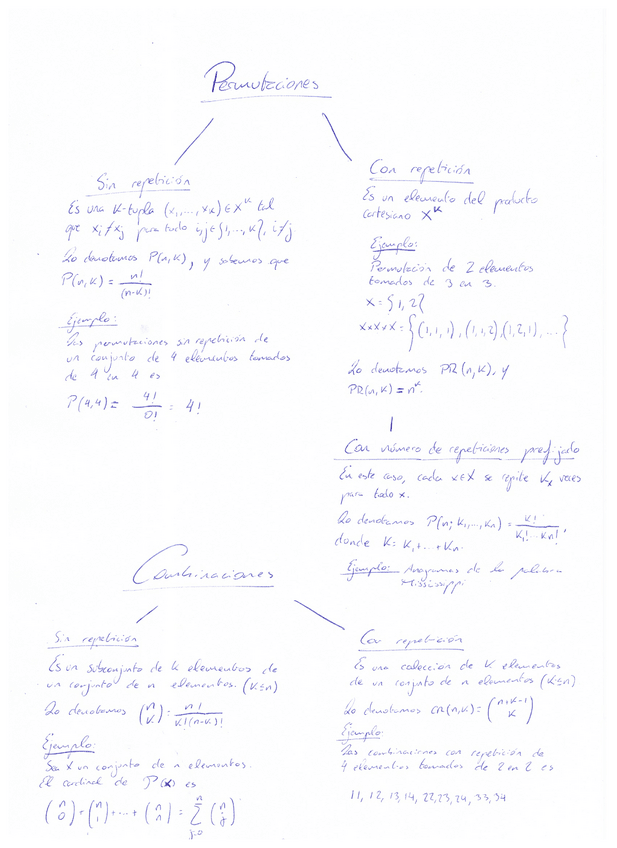 Permutaciones
Sin repetición
Es una K-tupla (x₁,...,xₖ) ∈ Xᴷ tal
que xᵢ ≠ xⱼ para todo i,j ∈ {1,...,K}, i≠j.
Lo denotamos P(n,K), y sabemos que
P(n,K) = n!/(n-K)!
Ejemplo:
Las permutaciones sin repetición de
un conjunto de 4 elementos tomados
de 4 en 4 es
P(4,4) = 4!/0! = 4!
Con repetición
Es un elemento del producto
cartesiano Xᴷ
Ejemplo:
Permutación de 2 elementos
tomados de 3 en 3.
X = {1, 2}
X×X×X = {(1,1,1), (1,1,2), (1,2,1), ...}
Lo denotamos PR(n,K), y
PR(n,K) = nᴷ.
Con número de repeticiones prefijado
En este caso, cada x∈X se repite Kₓ veces
para todo x.
Lo denotamos P(n; K₁,...,Kₙ) = K!/(K₁!...Kₙ!),
donde K = K₁+...+Kₙ.
Ejemplo: de la palabra
Mississippi
Combinaciones
Sin repetición
Es un subconjunto de k elementos de
un conjunto de n elementos. (K≤n)
Lo denotamos (n K) = n!/(K!(n-K)!)
Ejemplo:
Sea X un conjunto de n elementos.
El cardinal de P(X) es
(n 0) + (n 1) + ... + (n n) = Σⁿⱼ₌₀ (n j)
Con repetición
Es una colección de K elementos
de un conjunto de n elementos (K≤n)
Lo denotamos CR(n,K) = (n+K-1 K)
Ejemplo:
Las combinaciones con repetición de
4 elementos tomados de 2 en 2 es
11, 12, 13, 14, 22, 23, 24, 33, 34